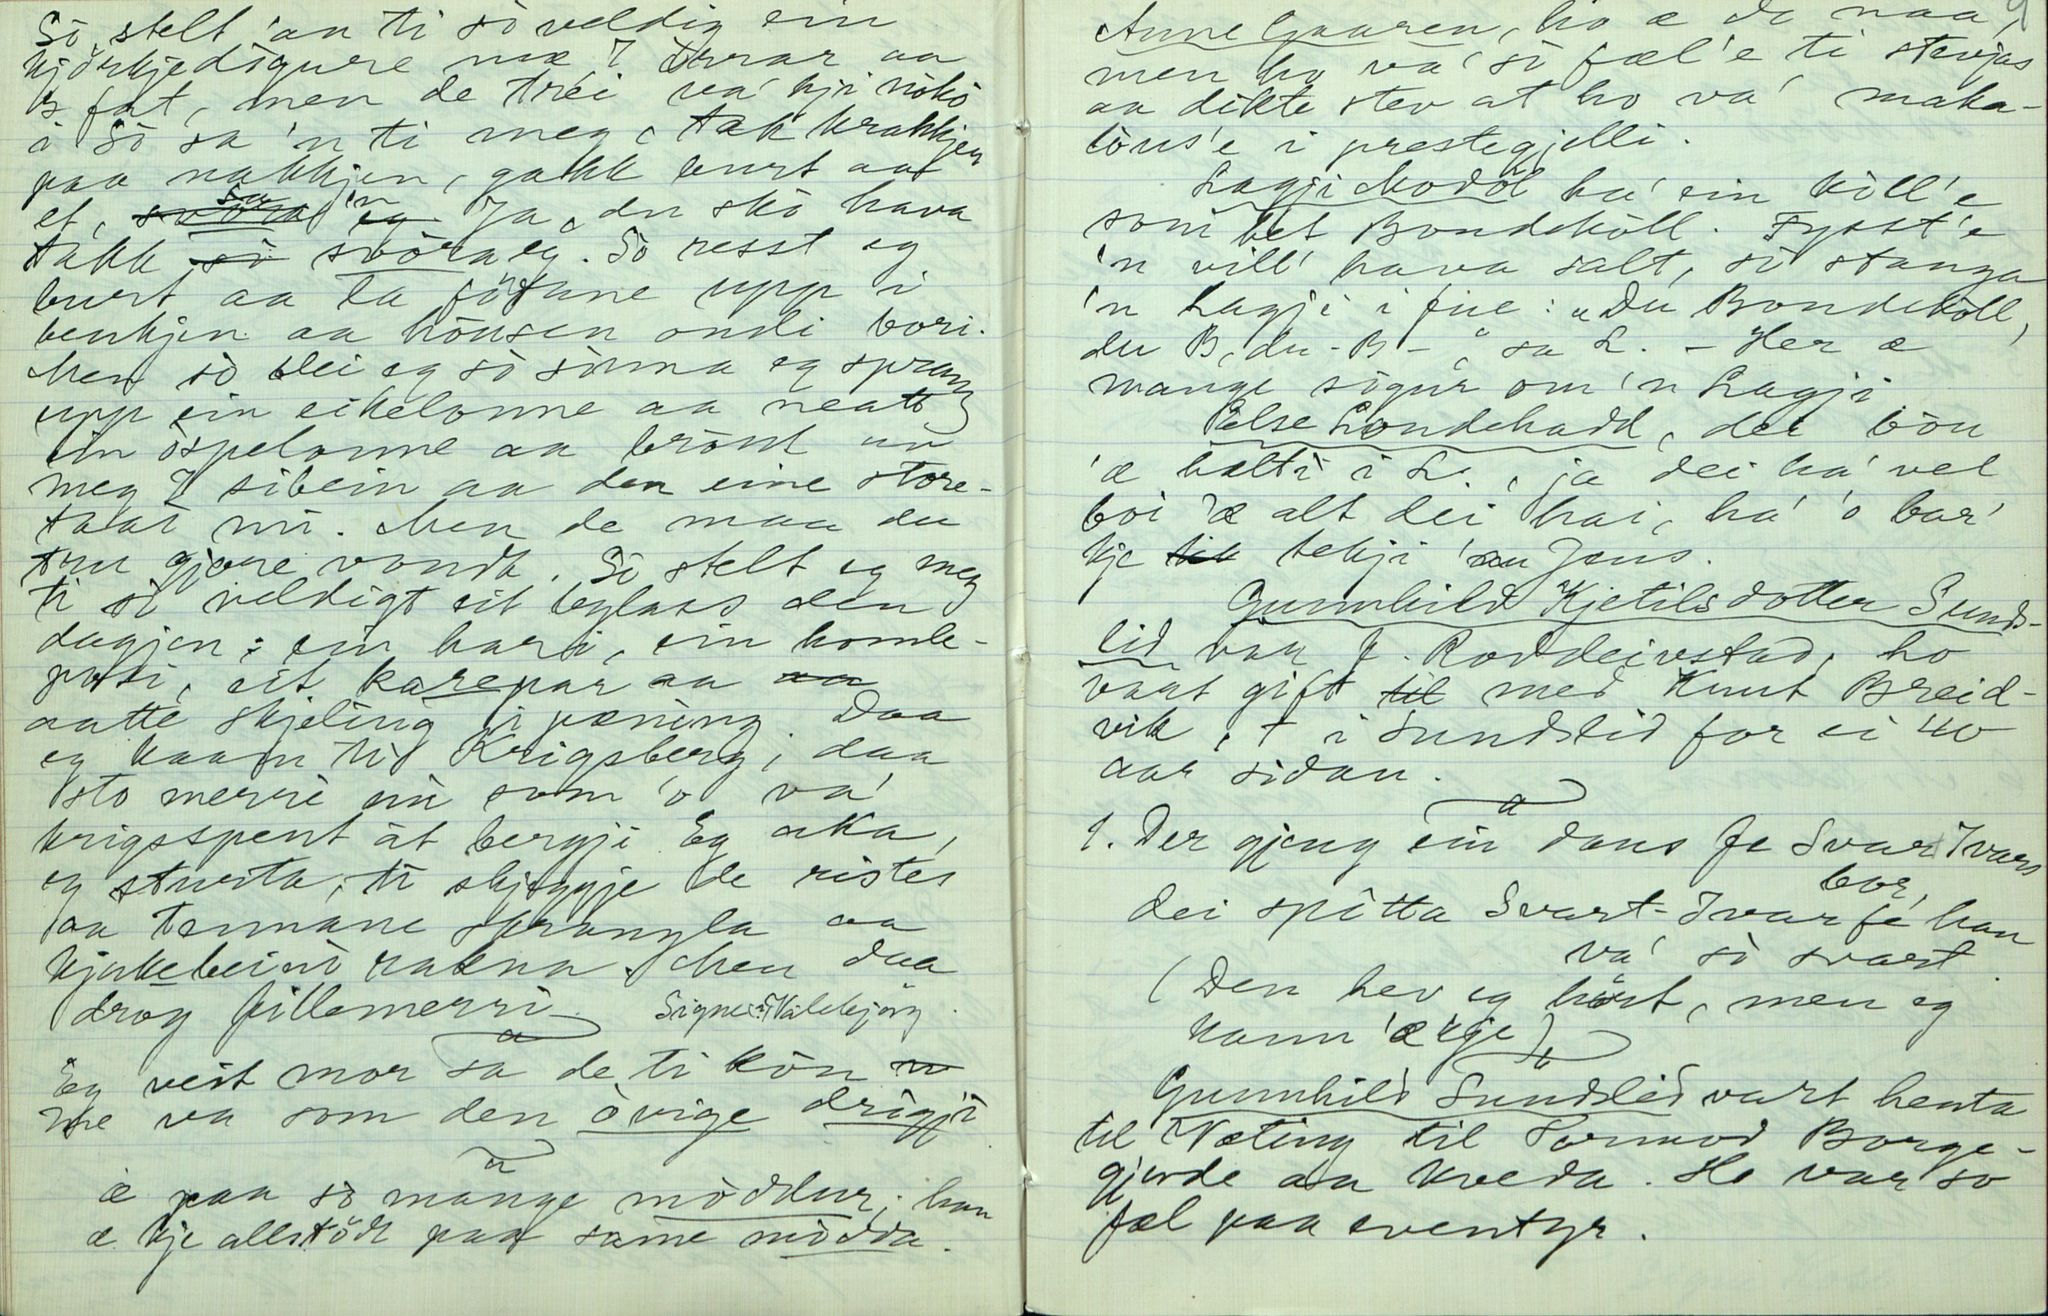 Sò stelt 'an ti sò veldig ein
kjörkjedigure mæ 7 örrar aa
fat, men de trei va' kji nökö
i Sò sa 'n ti meg, tak krakkjen
paa nakkjen, gakk burt aat
et, sa 'n Ja, du skò hava
takk svòra eg. Sò resst eg
burt aa la fötane upp i
benkjen aa höusen ondi bori.
Men sò slei eg sò sònna eg sprang
upp ein eikelonne aa neatt
ein òspelonne aa brònt un
meg 7 sibein aa den eine store-
taai mi. Men de maa du
tru gjore vondt. Sò stelt eg meg
ti sò veldigt eit bylass den
dagjen: ein hari, ein homle-
posi, eit karepar aa
aatte skjeling i pæning Daa
eg kaam til Krigsberg, daa
sto merri mi som 'o va'
krigsspent åt bergji Eg aka,
eg sturta, ti skjeggje de ristes
aa tennane skrangla aa
kjakebeini rakna. Men daa
drog fillemerri. Signe Vålebjörg.
Eg veit mor sa de ti kòn
me va som den òvige drigji
æ paa sò mange mòddur; han
æ kje allstödt paa same mòdda.
Anne Gaaren, ho æ do naa, 9
men ho va' sò fæl'e ti stevjas
aa dikte stev at ho va' maka-
löus'e i prestegjelli.
Lagji Modöl ha' ein köll'e
som het Bondeköll. Fysst'e
'n vill' hava salt, sò stanga
'n Lagji i fue: "Du Bondeköll,
du B, du - B - ", sa L. - Her æ
mange sògur om 'n Lagji.
Else Londehadd, dei bòu
'æ hatti i L., ja dei ha' vel
boi 'æ alt dei hai, ha' 'o bar'
kje tekji 'an Jens.
Gunnhild Kjetilsdotter Sunds-
lid var f. Roddeivstad, ho
vaat gift med Knut Breid-
vik, † i Sundslid for ei 40
aar sidan.
1. Der gjeng ein dans fe Svart Ivars
bor,
dei spitta Svart-Ivar fe han
va' sò svart
(Den hev eg höyrt, men eg
kann 'æ kje)
Gunnhild Sundslid vart henta
til Væting til Tormod Borge-
gjerde aa kveda. Ho var so
fæl paa eventyr.